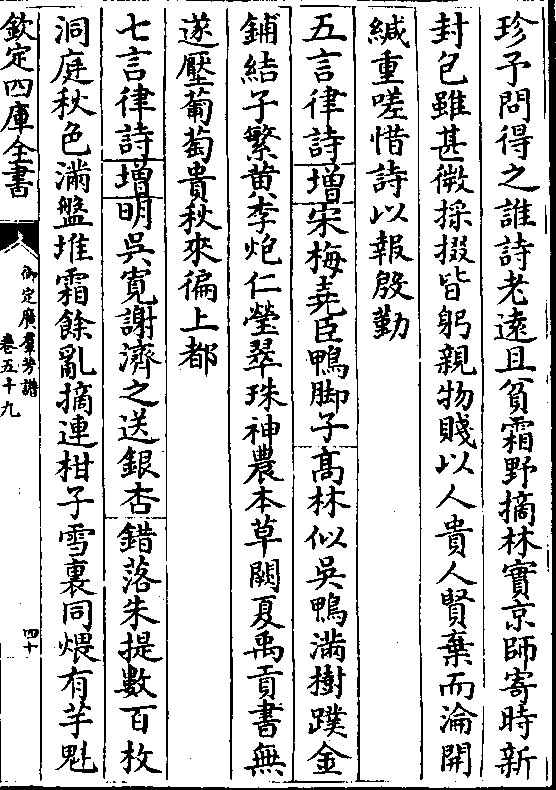 珍予問得之誰詩老遠且貧霜野摘林實京師寄時新
封包雖甚微採掇皆躬親物賤以人貴人賢棄而淪開
緘重嗟惜詩以報殷勤
五言律詩增宋梅堯臣鴨脚子高林似吳鴨滿樹蹼金
鋪結子繁黄李炮仁瑩翠珠神農本草闕夏禹貢書無
遂壓葡萄貴秋來徧上都
七言律詩增明吳寛謝濟之送銀杏錯落朱提數百枚
洞庭秋色滿盤堆霜餘亂摘連柑子雪裏同煨有芋魁
欽定四庫全書
御定廣羣芳譜
卷五十九
四十